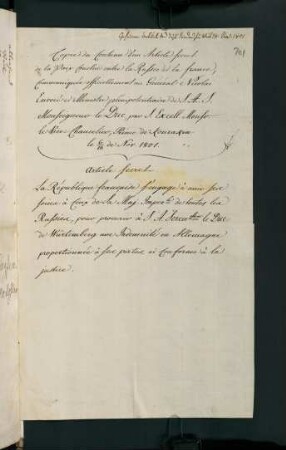 Copie du Contenu d'un Article secret
de la Paix conclue entre la Russie et la france,
Communiquée officiellement au Général de Nicolai
Envoié et Ministre plénipotentiaire de S. A. S.
Monseigneur le Duc, par S. Excell. Mons.
le Vice Chancelier, Prince de Kourakin
le de Nov. 1801.
Article secret
La République française s'engage à unir ses
soins à ceux de Sa Maj. Imper. de toutes les
Russies, pour procurer à S. A. Seren. le Duc
de Würtemberg une Indemnité en Allemagne
proportionnée à ses pertes et conforme à la
justice.